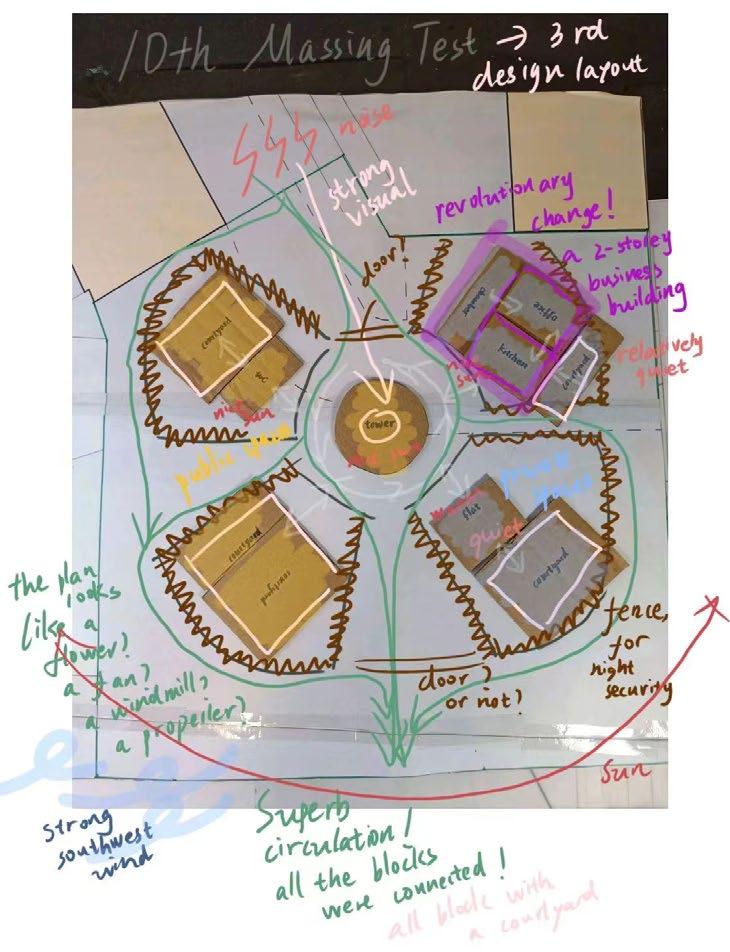 10th Massing Test → 3rd
design layout
noise
strong
visual
revolutionary
change!
a 2-storey
business
building
door?
chamber
office
kitchen
courtyard
nice
sun
relatively
quiet
courtyard
wc
nice
sun
tower
nice sun
public space
flat
quiet
courtyard
courtyard
the plan
looks
like a
flower?
a fan?
a windmill?
a propeller?
fence,
for
night
security
door?
or not?
sun
strong
southwest
wind
Superb
circulation!
all the blocks
were connected!
all block with
a courtyard